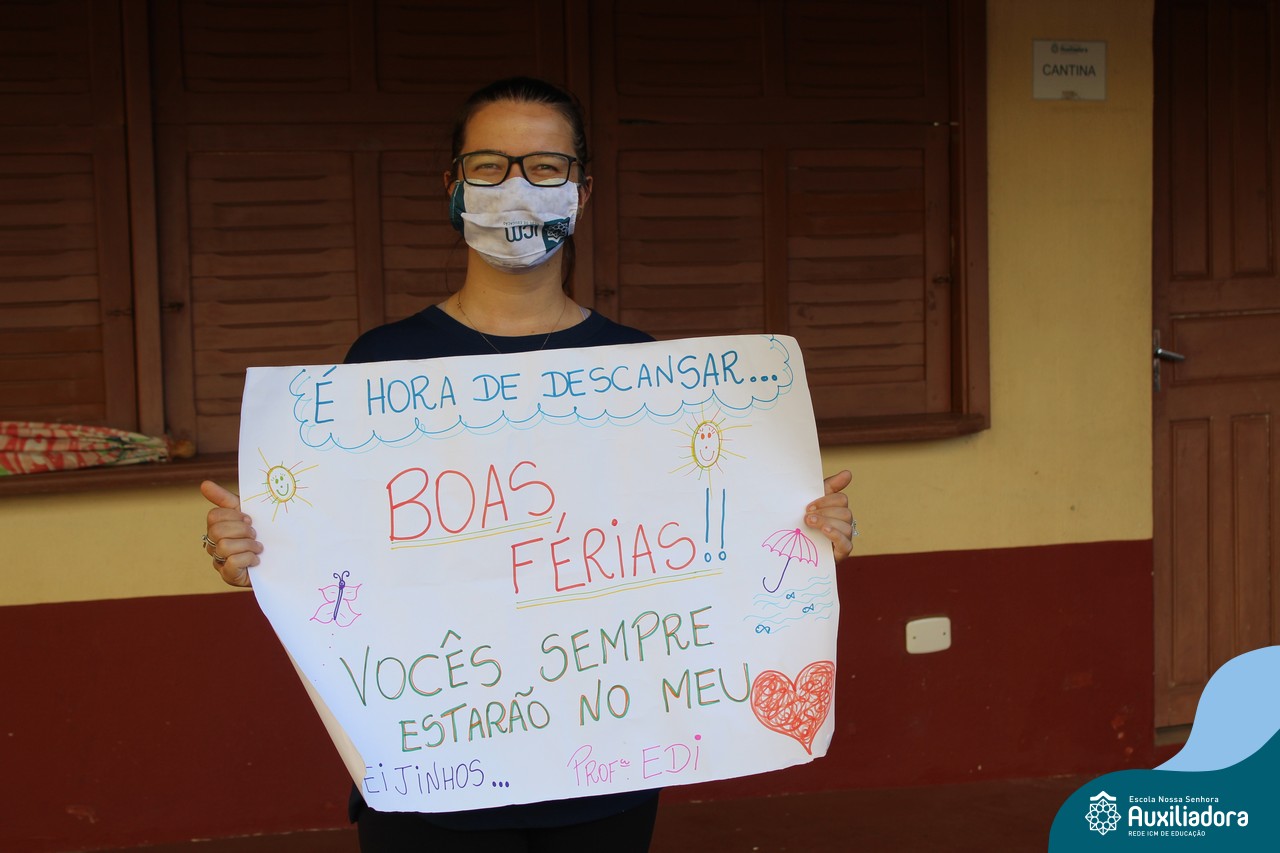 Auxiliadora
CANTINA
ICM
É HORA DE DESCANSAR...
BOAS
FÉRIAS!!
VOCÊS SEMPRE
ESTARÃO NO MEU
EIJINHOS...
PROFª. EDI
Escola Nossa Senhora
Auxiliadora
REDE ICM DE EDUCAÇÃO